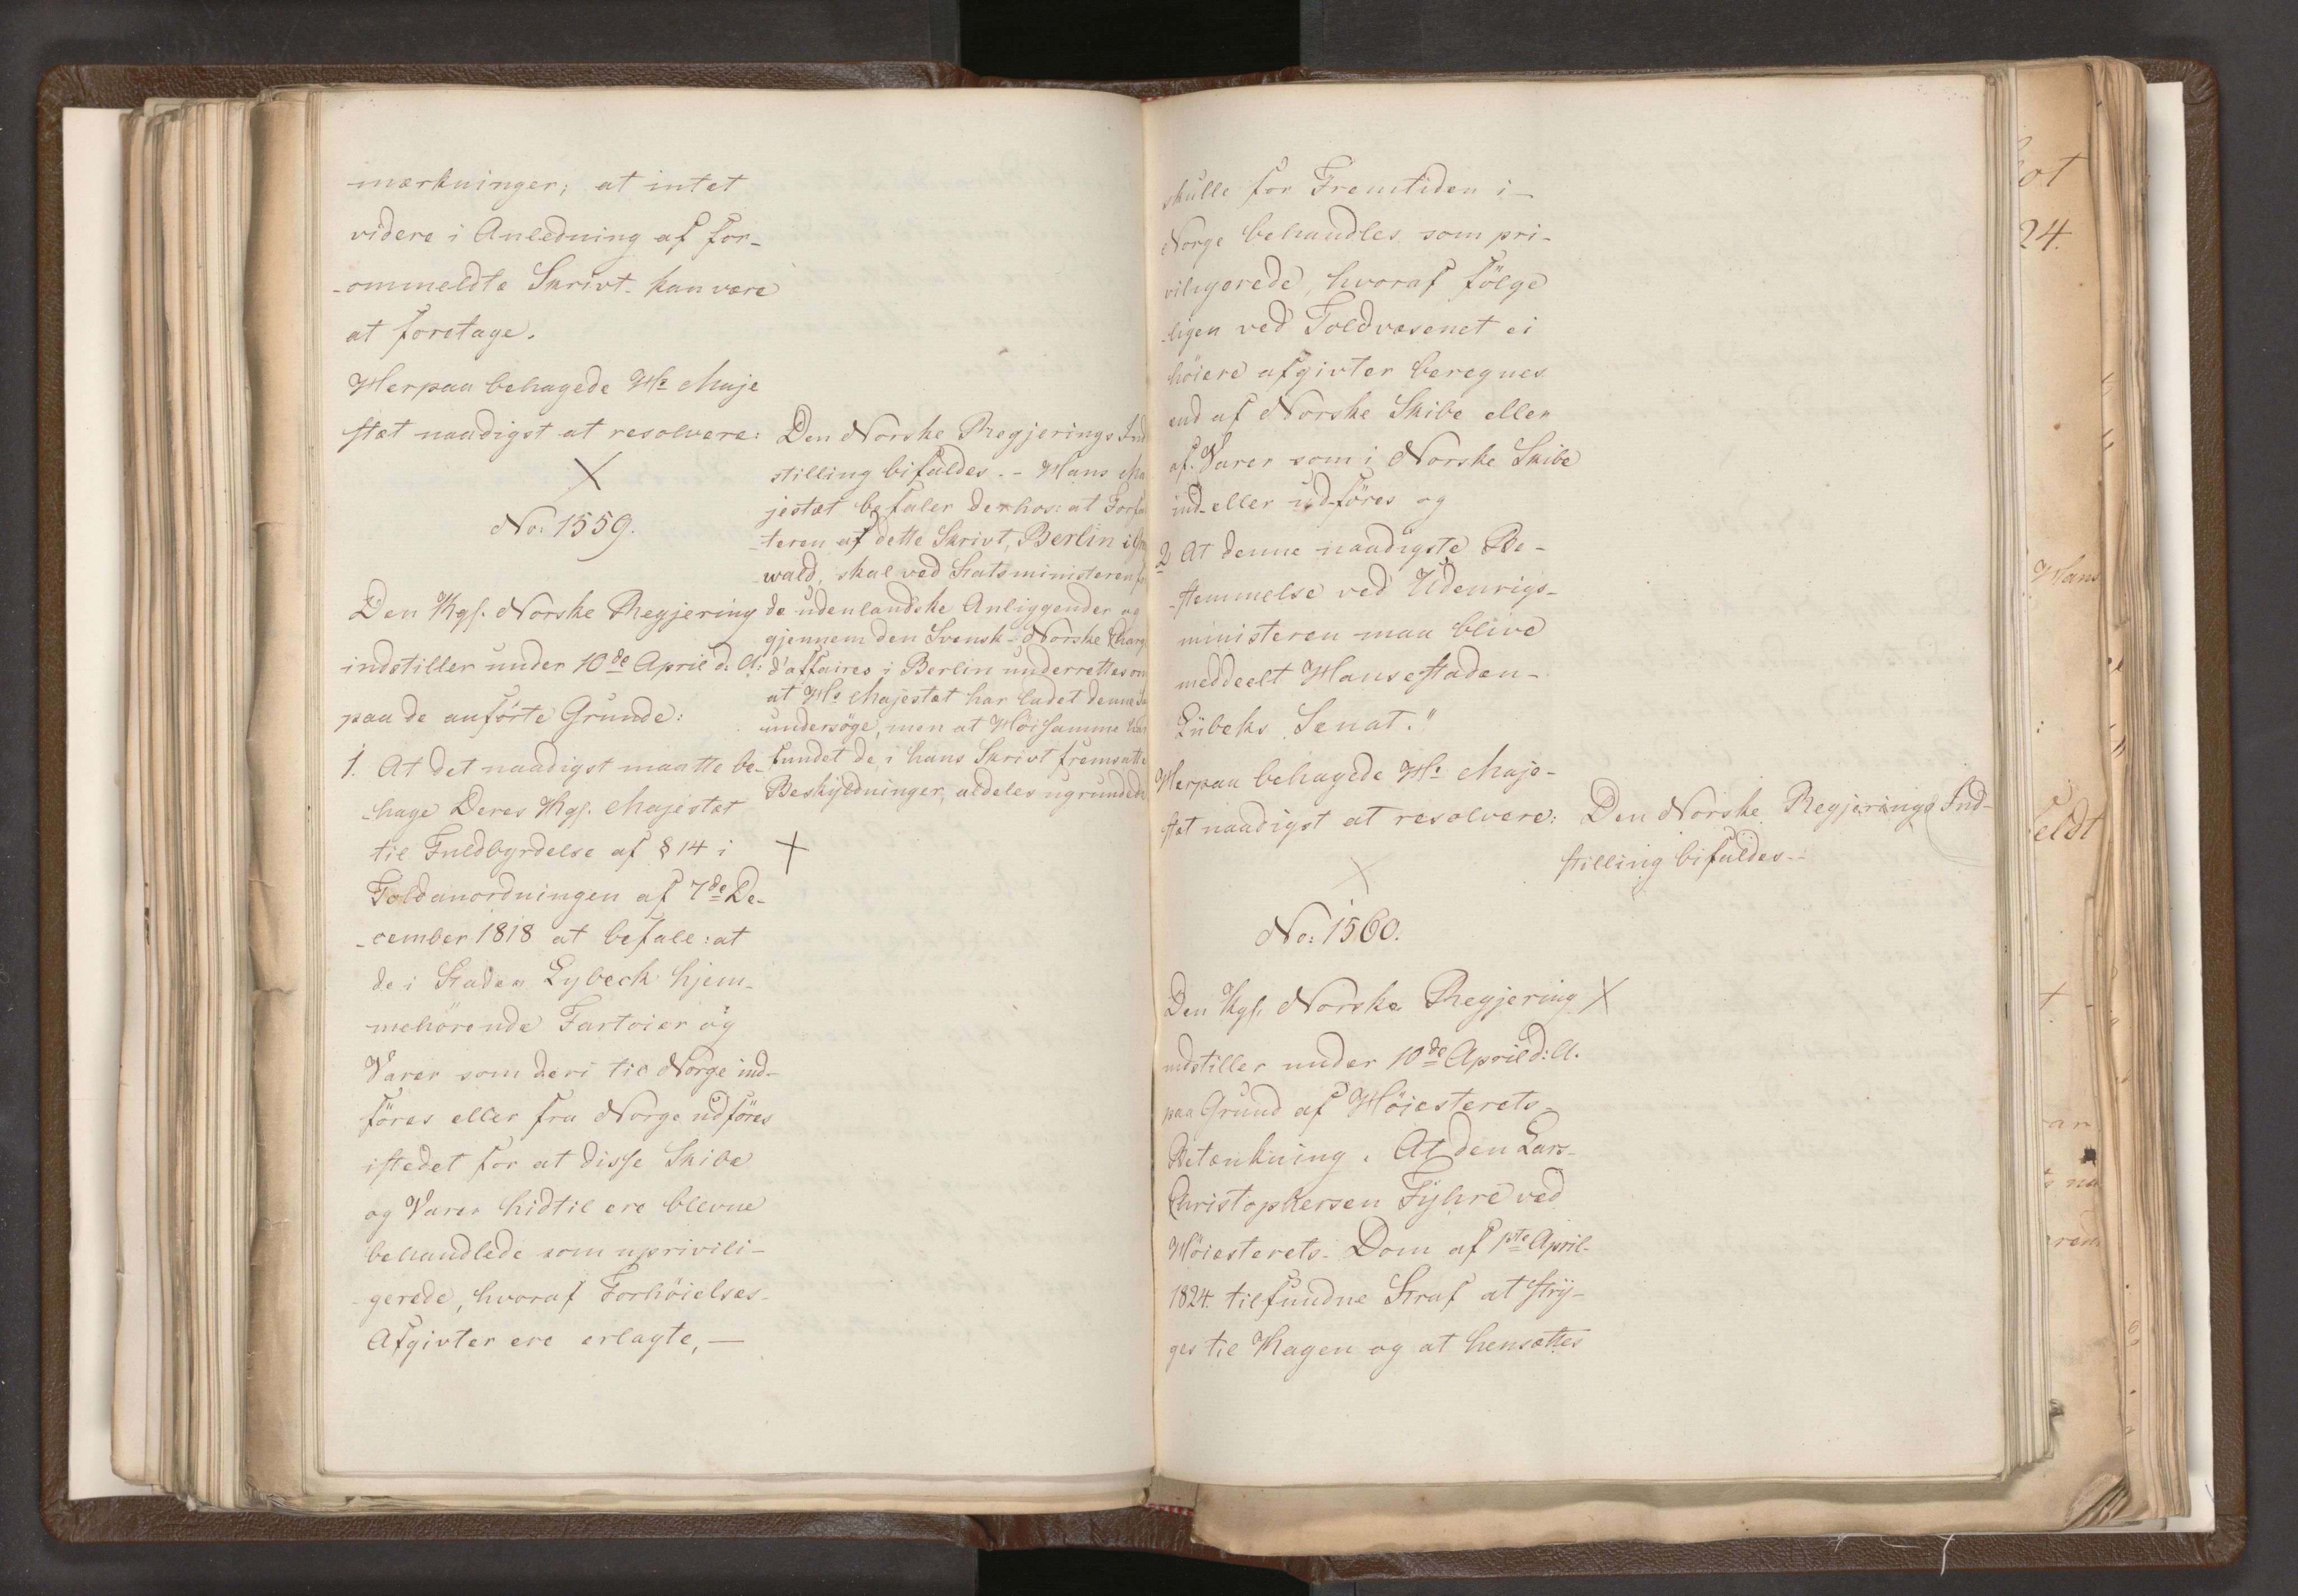 mærkninger; at intet
videre i Anledning af for-
-ommeldte Skrivt kan være
at foretage.
Herpaa behagede Hs Maje
stæt naadigst at resolvere:
Den Norske Regjerings Ind
stilling bifaldes. - Hans Ma
jestæt befaler derhos: at Forfa
-teren af dette Skrivt, Berlin i
-wald, skal ved Statsministeren for
de udenlandske Anliggender og
gjennem den Svensk-Norske Charg
d'affaires i Berlin underrettes om
at Hs Majestæt har ladet denne
undersøge, men at Höisamme har
fundet de i hans Skrivt fremsatte
Beskyldninger, aldeles ugrundede
X
No: 1559.
Den Kgl. Norske Regjering
indstiller under 10de April d. A:
paa de anförte Grunde:
1. At det naadigst maatte be-
-hage Deres Kgl. Majestæt
til Fuldbyrdelse af § 14 i
X
Toldanordningen af 7de De-
-cember 1818 at befale: at
de i Staden Lybeck hjem-
mehörende Fartöier og
Varer som deri til Norge ind-
föres eller fra Norge udföres
istedet for at disse Skibe
og Varer hidtil ere blevne
behandlede som uprivili-
-gerede, hvoraf Forhöielses-
Afgivter ere erlagte, —
skulle for Fremtiden i-
Norge behandles som pri-
viligerede, hvoraf fölge
-ligen ved Toldvæsenet ei
höiere afgivter beregnes
end af Norske Skibe eller
af Varer som i Norske Skibe
ind-eller udföres og
2 At denne naadigste Be-
-stemmelse ved Udenrigs-
ministeren maa blive
meddeelt Hansestaden-
Lübeks Senat."
Herpaa behagede Hs Maje-
stæt naadigst at resolvere:
Den Norske Regjerings Ind-
stilling bifaldes.-
X
No: 1560.
Den Kgl. Norske Regjering X
indstiller under 10de April d: A.
paa Grund af Höiesterets-
Betænkning. At den Lars-
Christophersen Fyhre ved
Höiesterets- Dom af 1ste April-
1824. tilfundne Straf at stry-
ges til Kagen og at hensættes
ot
24.
Hans
feldt